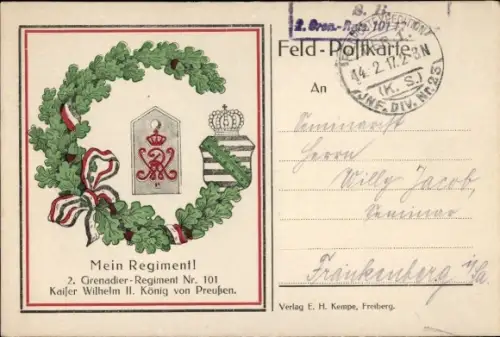 S. B.
2. Gren.-Reg. 101
Feld-Postkarte
14.2.17. 2-3N
(K.S.)
INF. DIV. Nr. 23
An
Seminarist
Herrn
Willy Jacob,
Seminar
Frankenberg i/Sa.
Mein Regiment!
2. Grenadier-Regiment Nr. 101
Kaiser Wilhelm II. König von Preußen.
Verlag E. H. Kempe, Freiberg.